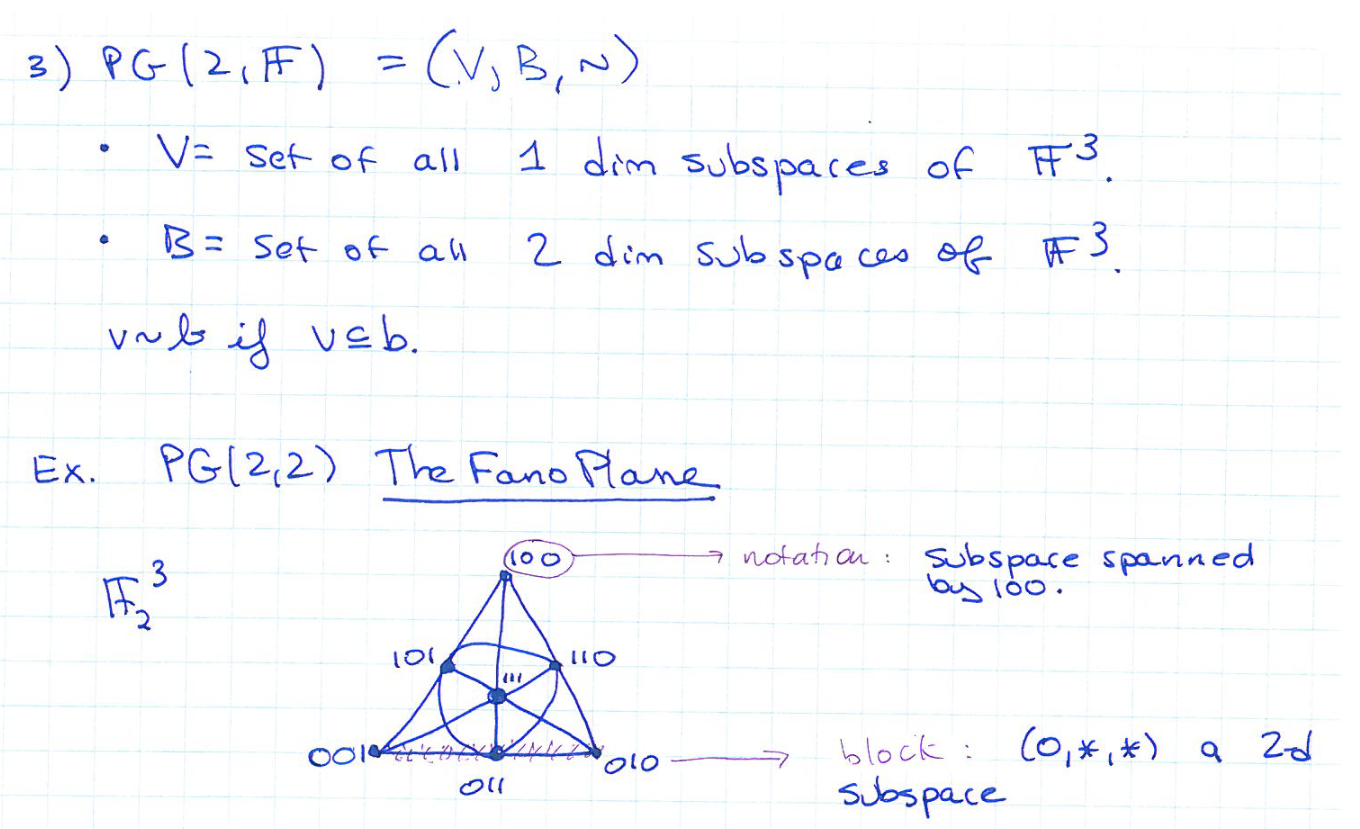 3) PG(2,𝔽) = (V, B, ~)
• V= set of all 1 dim subspaces of 𝔽³.
• B= set of all 2 dim subspaces of 𝔽³.
v~b if v⊆b.
Ex. PG(2,2) The Fano Plane
𝔽₂³
100 → notation: subspace spanned
by 100.
101 110
111
001 010 → block: (0,*,*) a 2-d
011 subspace